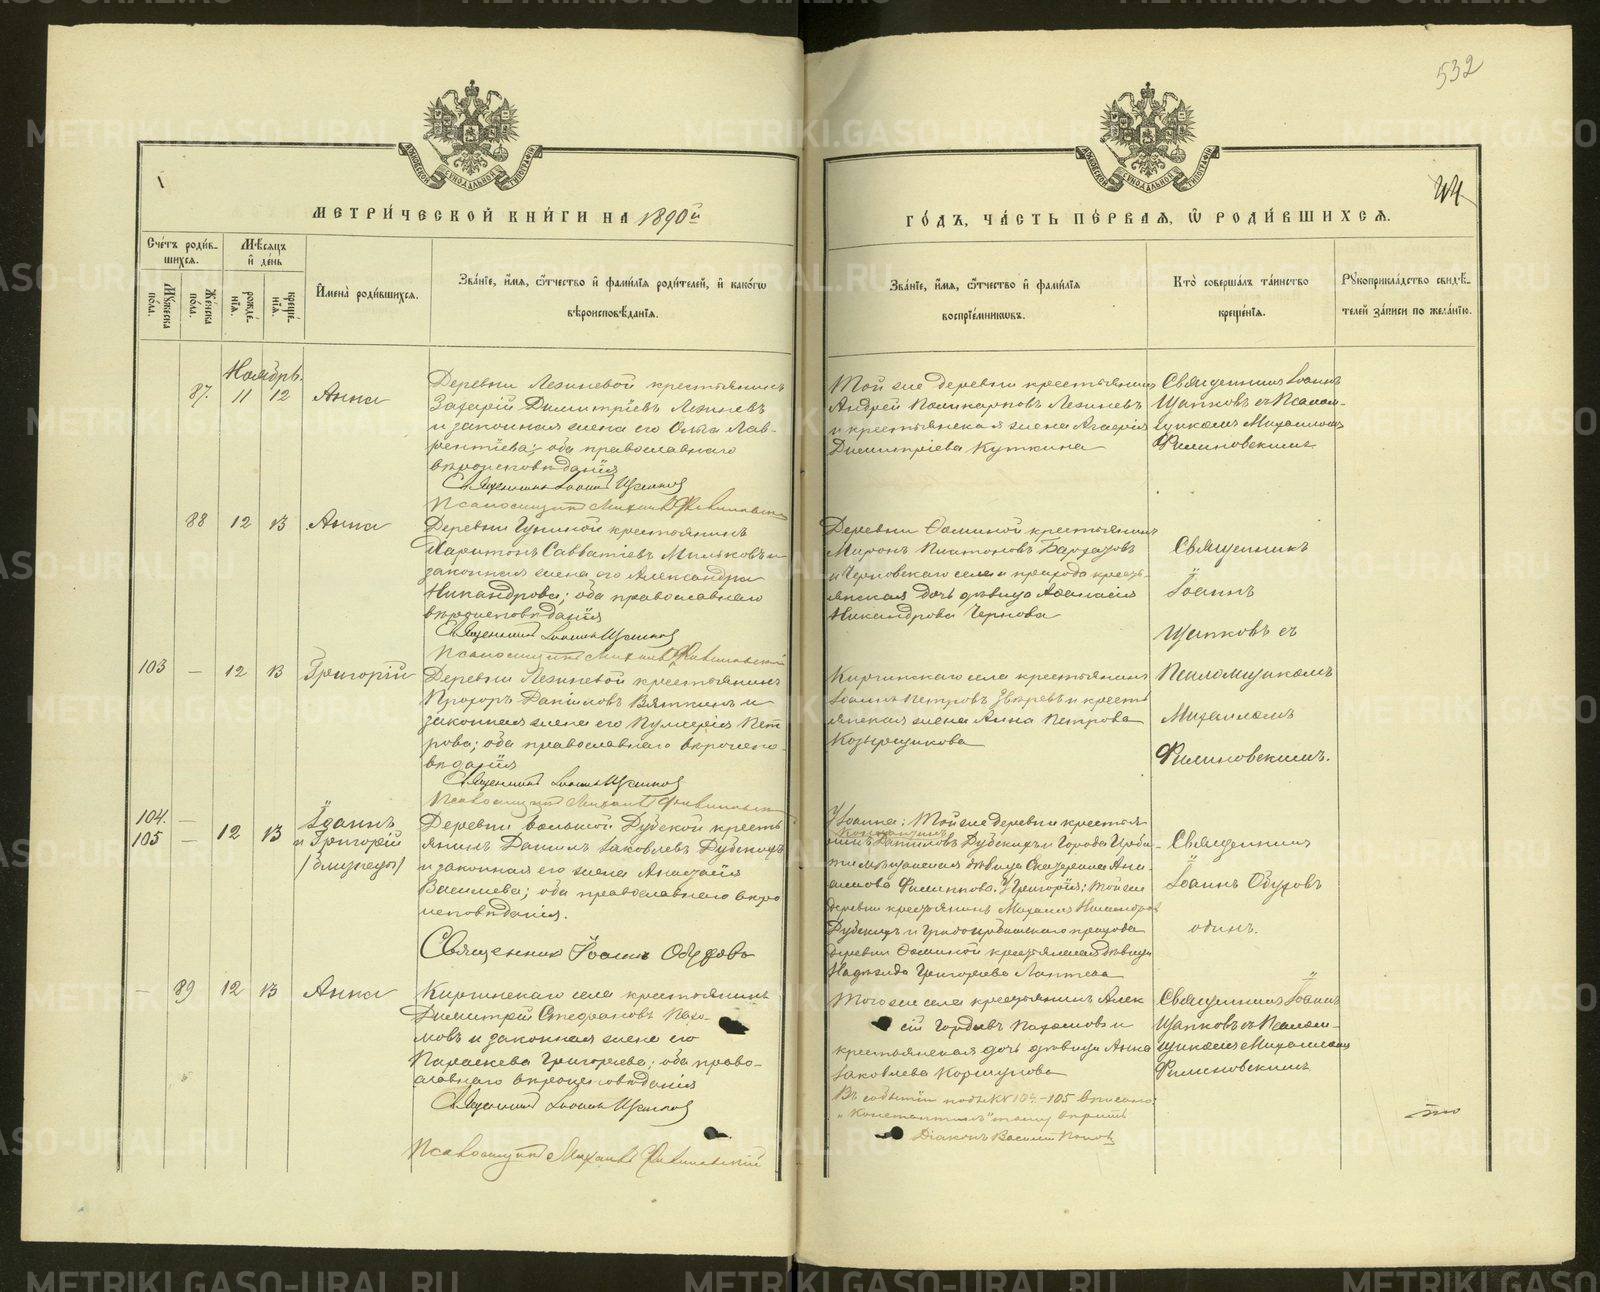 532
44
МЕТРИ́ЧЕСКОЙ КНИ́ГИ НА 1890й
ГО́ДЪ, ЧА́СТЬ ПЕ́РВАЯ, Ѿ РОДИ́ВШИХСЯ.
Сче́тъ роди́вшихся.
Му́жеска по́ла.
Же́нска по́ла.
Мѣ́сяцъ и҆ де́нь
рожде́нїя.
креще́нїя.
И҆мена̀ роди́вшихся.
Зва́нїе, и҆́мя, ѻ҆́тчество и҆ фами́лїя роди́телей, и҆ како́гѡ
вѣроисповѣ́данїя.
Зва́нїе, и҆́мя, ѻ҆́тчество и҆ фами́лїя
воспрїе́мникѡвъ.
Кто̀ соверша́лъ та́инство
креще́нїя.
Рꙋкоприкла́дство свидѣ́телей за́писи по жела́нїю.
Ноябрь.
87. 11 12 Анна
Деревни Лезиневой крестьянинъ
Захарій Димитріевъ Лезиневъ
и законная жена его Ольга Лав-
рентіева; оба православнаго
вѣроисповѣданія
Священникъ Іоаннъ Щапковъ
Псаломщикъ Михаилъ Филиновскій
Той же деревни крестьянинъ
Андрей Поликарповъ Лезиневъ
и крестьянская жена
Димитріева Куткина
Священникъ Іоаннъ
Щапковъ съ Псалом-
щикомъ Михаиломъ
Филиновскимъ
88 12 13 Анна
Деревни крестьянинъ
Харитонъ Савватіевъ Мильковъ и
законная жена его Александра
Никандрова; оба православнаго
вѣроисповѣданія
Священникъ Іоаннъ Щапковъ
Псаломщикъ Михаилъ Филиновскій
Деревни Ѳоминой крестьянинъ
Миронъ Платоновъ
и Черновскаго села и прихода кресть-
янская дочь дѣвица Аѳанасія
Никандрова Чернова
Священникъ
Іоаннъ
Щапковъ съ
Псаломщикомъ
Михаиломъ
Филиновскимъ.
103 — 12 13 Григорій
Деревни Лезиневой крестьянинъ
Прохоръ Даниловъ Вяткинъ и
законная жена его Пульхерія Пет
рова; оба православнаго вѣроиспо-
вѣданія
Священникъ Іоаннъ Щапковъ
Псаломщикъ Михаилъ Филиновскій
Киргинскаго села крестьянинъ
Іоаннъ Петровъ Звѣревъ и кресть
янская жена Анна Петрова
Козырщикова
104. —
105 — 12 13
Іоаннъ
и Григорій
(близнецы)
Деревни Большой Дубской кресть
янинъ Даніилъ Іаковлевъ Дубскихъ
и законная его жена Анастасія
Василіева; оба православнаго вѣро
исповѣданія.
Священникъ Іоаннъ Обуховъ
У Іоанна: Той же деревни крестья
Константинъ
нинъ Даниловъ Дубскихъ и города Ирби-
ти мѣщанская дѣвица Екатерина
Филиппова. У Григорія: Той же
деревни крестьянинъ Михаилъ
Дубскихъ и прихода
деревни Ѳоминой крестьянская дѣвица
Надежда Григорьева Лаптева
Священникъ
Іоаннъ Обуховъ
одинъ.
— 89 12 13 Анна
Киргинскаго села крестьянинъ
Димитрій Стефановъ Пахо-
мовъ и законная жена его
Параскева Григорьева; оба право-
славнаго вѣроисповѣданія
Священникъ Іоаннъ Щапковъ
Псаломщикъ Михаилъ Филиновскій
Того же села крестьянинъ Алек
сій Гордѣевъ Пахомовъ и
крестьянская дочь дѣвица Анна
Іаковлева Коршунова
Священникъ Іоаннъ
Щапковъ съ Псалом-
щикомъ Михаиломъ
Филиновскимъ
Въ событіи подъ №№ 104-105 вписано:
„Константинъ" тому вѣрить
Діаконъ Василій Попов
METRIKI.GASO-URAL.RU